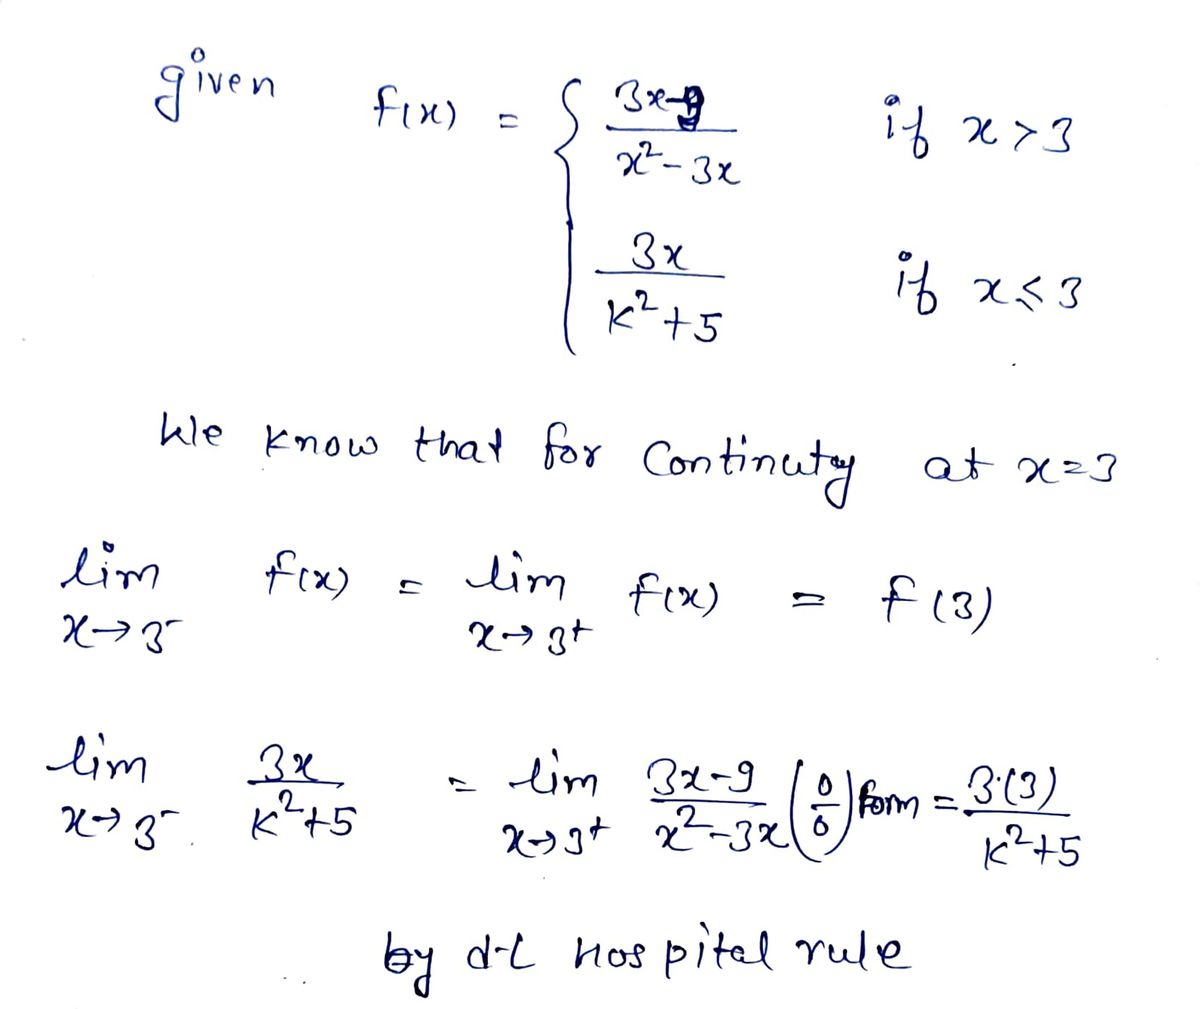 given f(x) = { (3x-9)/(x²-3x) if x>3
3x/(k²+5) if x≤3
We know that for Continuty at x=3
lim x→3⁻ f(x) = lim x→3⁺ f(x) = f(3)
lim x→3⁻ 3x/(k²+5) = lim x→3⁺ (3x-9)/(x²-3x) (0/0) form = 3·(3)/(k²+5)
by d-L Hospital rule